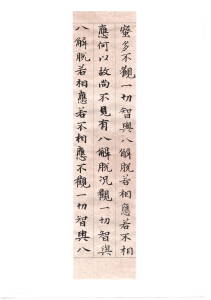 蜜多不觀一切智與八解脫若相應若不相
應何以故尚不見有八解脫況觀一切智與
八解脫若相應若不相應不觀一切智與八